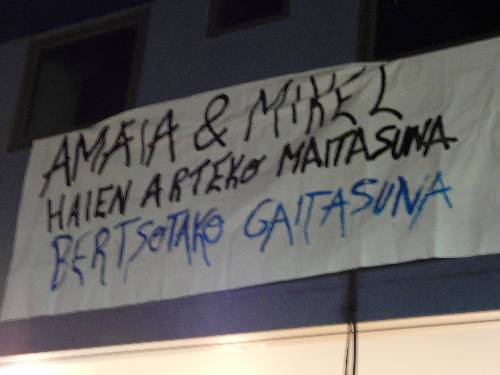 AMAIA & MIKEL
HAIEN ARTEKO MAITASUNA
BERTSOTAKO GAITASUNA